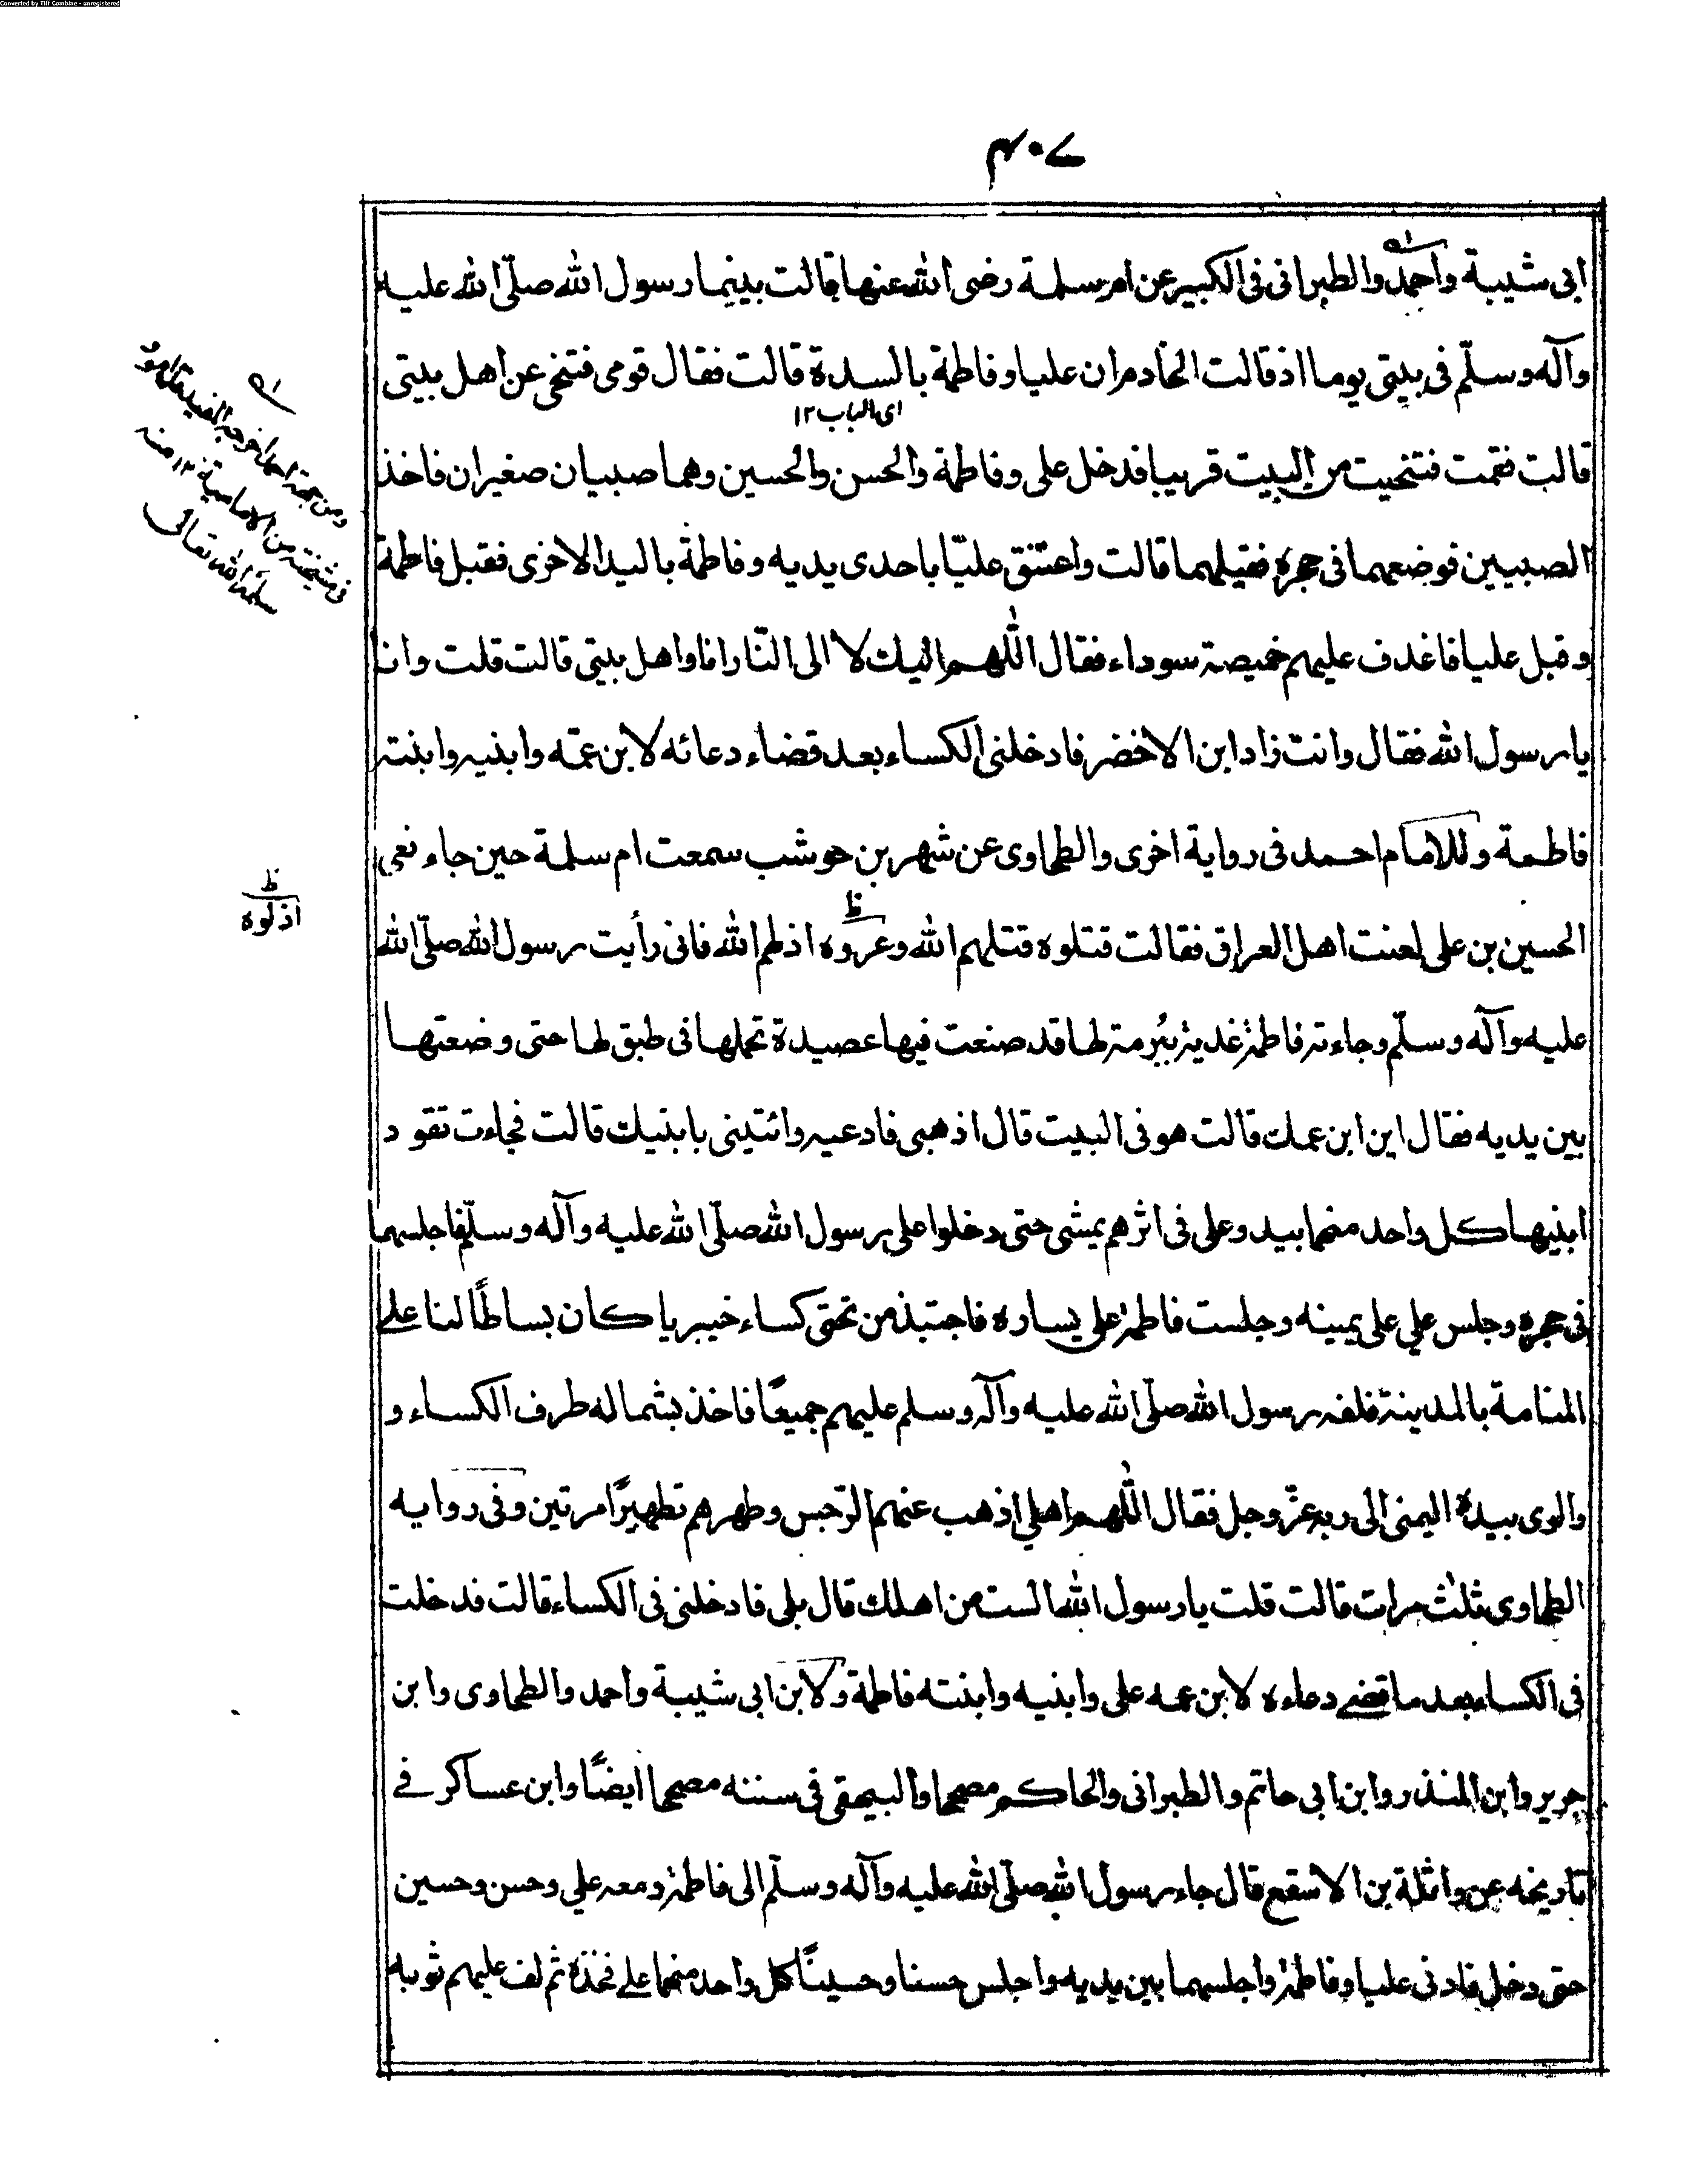 Converted by Tiff Combine - unregistered
۴۰۷
ابى شيبة واحمد والطبرانى فى الكبير عن ام سلمة رضى الله عنها قالت بينما رسول الله صلّى الله عليه
وآله وسلّم فى بيتى يوما اذ قالت الخادم ان عليا وفاطمة بالسدة قالت فقال قومى فتنحى عن اهل بيتى
اى الباب ١٢
قالت فقمت فتنحيت من البيت قريبا فدخل على وفاطمة والحسن والحسين وهما صبيان صغيران فاخذ
الصبيين فوضعهما فى حجره فقبلهما قالت واعتنق عليّا باحدى يديه وفاطمة باليد الاخرى فقبل فاطمة
وقبل عليا فاغدف عليهم خميصة سوداء فقال اللّهم اليك لا الى النّار انا واهل بيتى قالت قلت وانا
يا رسول الله فقال وانت زاد ابن الاخضر فادخلنى الكساء بعد قضاء دعائه لابن عمّه وابنيه وابنته
فاطمة وللامام احمد فى رواية اخرى والطحاوى عن شهر بن حوشب سمعت ام سلمة حين جاء نعى
الحسين بن على لعنت اهل العراق فقالت قتلوه قتلهم الله وعروه اذلهم الله فانى رأيت رسول الله صلّى الله
عليه وآله وسلّم وجاءته فاطمة غدية ببُرمة لها قد صنعت فيها عصيدة تحملها فى طبق لها حتى وضعتها
بين يديه فقال اين ابن عمك قالت هو فى البيت قال اذهبى فادعيه وائتينى بابنيك قالت فجاءت تقود
ابنيها كل واحد منهما بيد وعلى فى اثرهم يمشى حتى دخلوا على رسول الله صلّى الله عليه وآله وسلّم فاجلسهما
فى حجره وجلس علي على يمينه وجلست فاطمة على يساره فاجتبذ من تحتى كساء خيبريا كان بساطًا لنا على
المنامة بالمدينة فلفه رسول الله صلّى الله عليه وآله وسلم عليهم جميعًا فاخذ بشماله طرف الكساء و
والوى بيده اليمنى الى ربه عزّ وجل فقال اللّهم اهلي اذهب عنهم الرّجس وطهرهم تطهيرًا مرتين وفى رواية
الطحاوى ثلٰث مرات قالت قلت يا رسول الله الست من اهلك قال بلى فادخلنى فى الكساء قالت فدخلت
فى الكساء بعد ما قضى دعاءه لابن عمه على وابنيه وابنته فاطمة ولابن ابى شيبة واحمد والطحاوى وابن
جرير وابن المنذر وابن ابى حاتم والطبرانى والحاكم مصححا والبيهقى فى سننه مصححا ايضًا وابن عساكر فى
تاريخه عن واثلة بن الاسقع قال جاء رسول الله صلّى الله عليه وآله وسلّم الى فاطمة ومعه علي وحسن وحسين
حتى دخل فادنى عليا وفاطمة واجلسهما بين يديه واجلس حسنا وحسينًا كل واحد منهما على فخذه ثم لف عليهم ثوبه
ومن جهة احمد اخرجه
فى مشيخته من ١٢ منه
سلمه الله تعالى
ظ
اذلوه